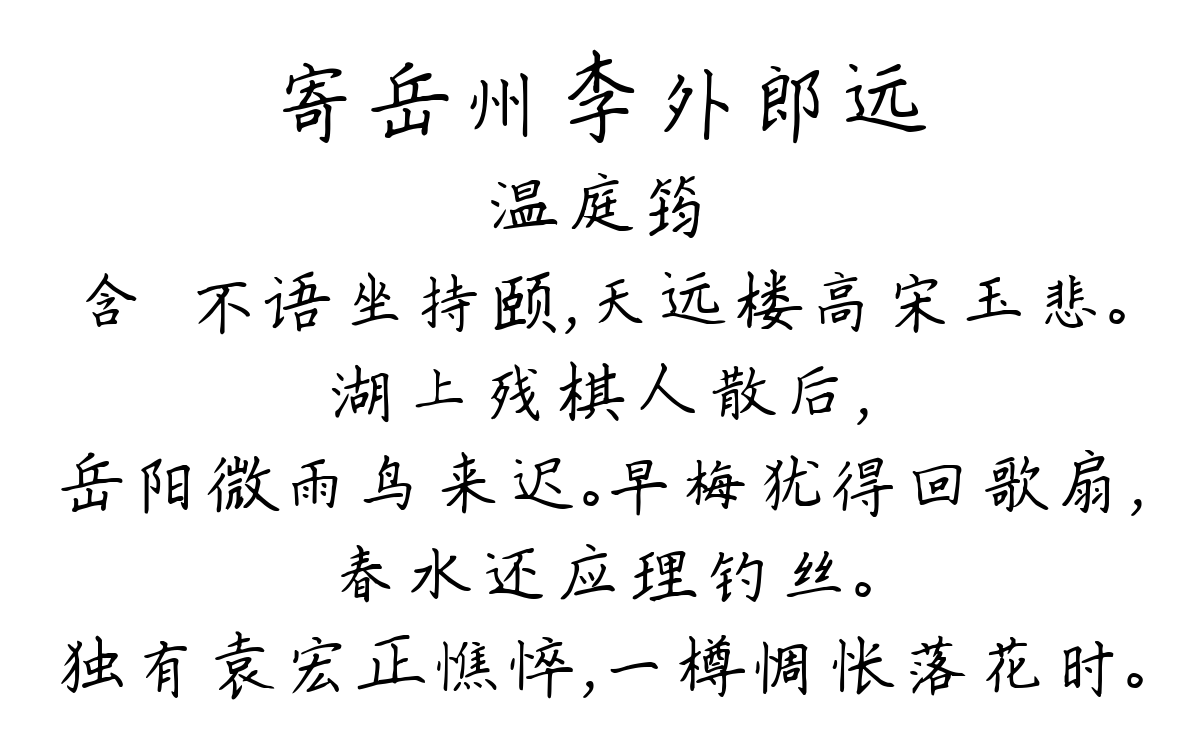 寄岳州李外郎远
温庭筠
含 不语坐持颐,天远楼高宋玉悲。
湖上残棋人散后,
岳阳微雨鸟来迟。早梅犹得回歌扇,
春水还应理钓丝。
独有袁宏正憔悴,一樽惆怅落花时。